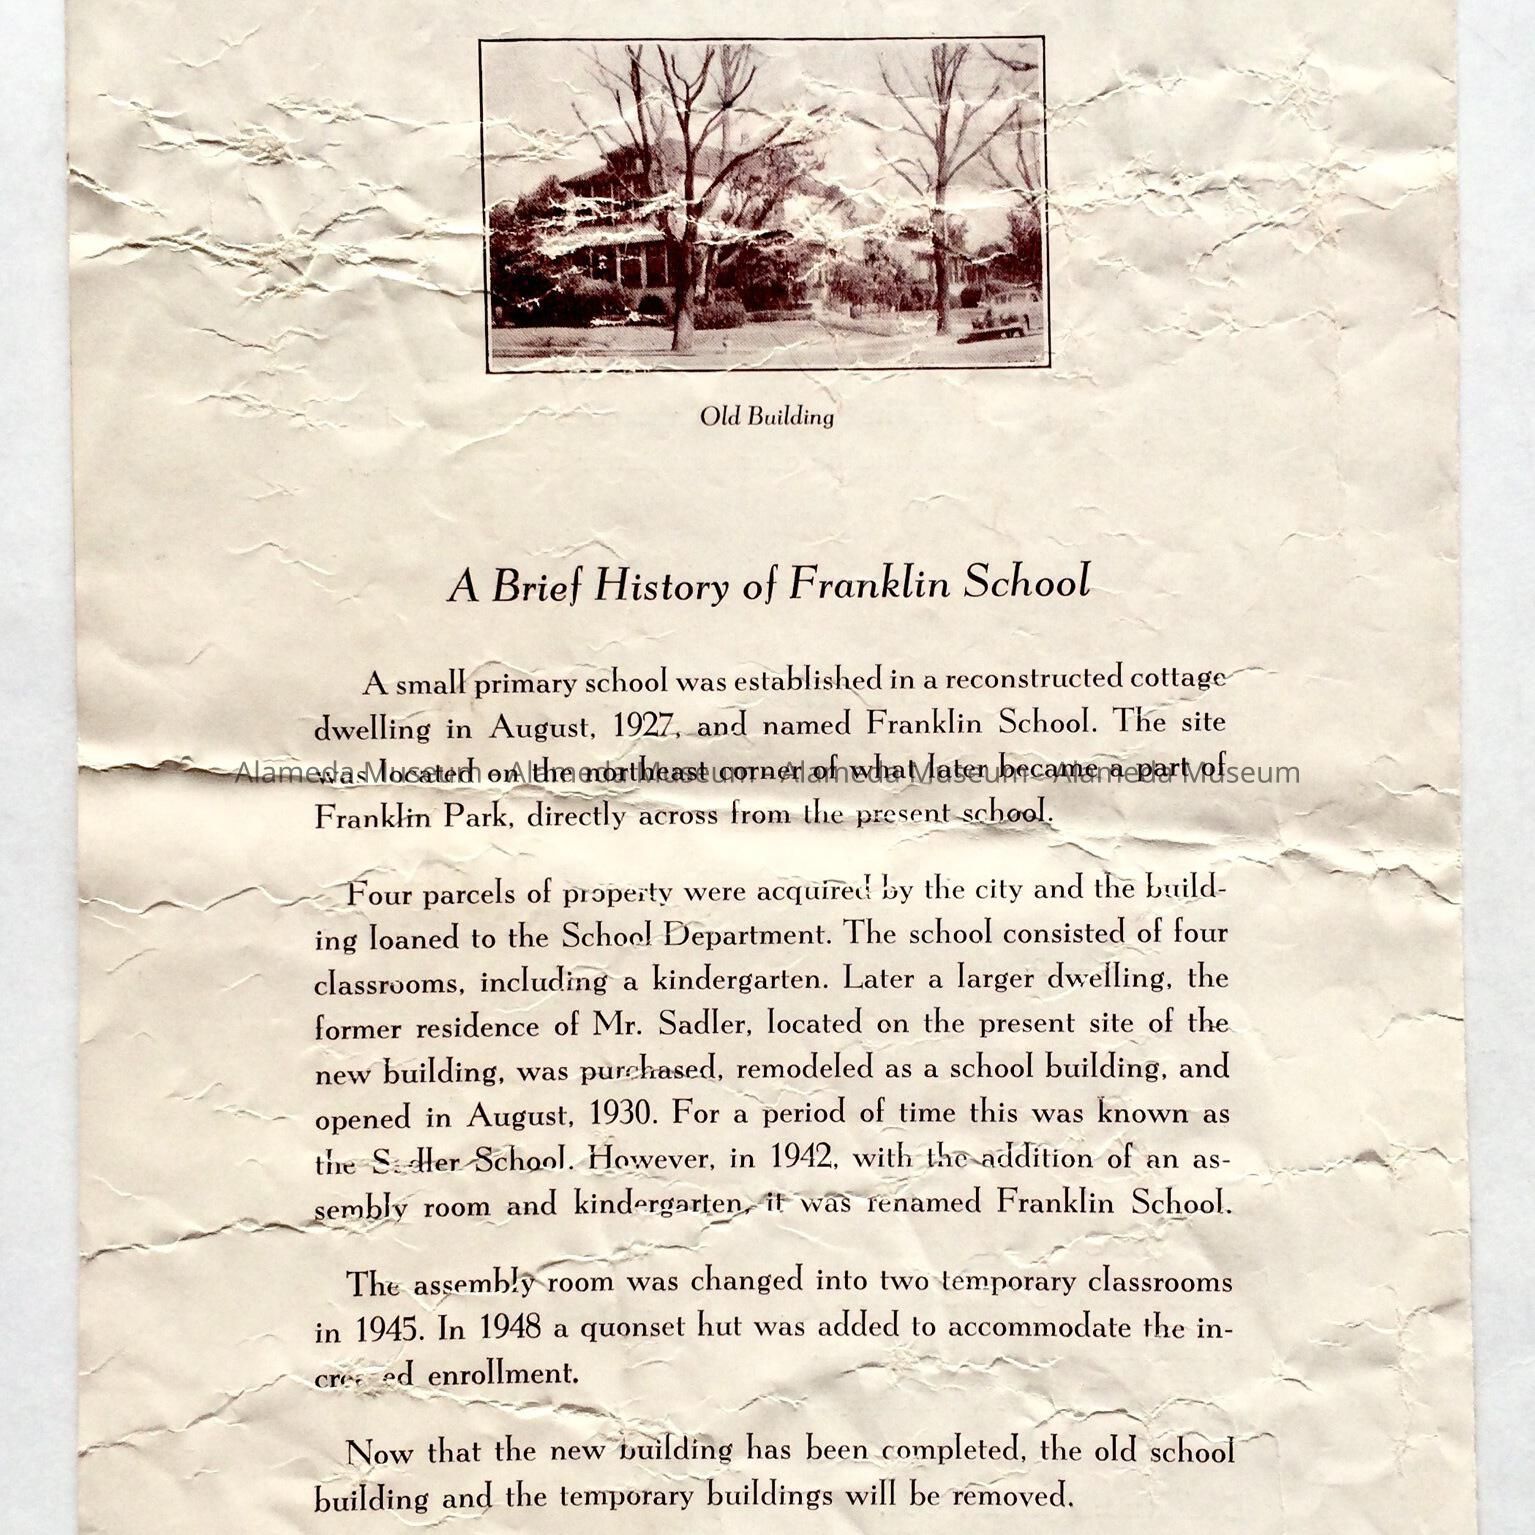 Old Building
A Brief History of Franklin School
A small primary school was established in a reconstructed cottage
dwelling in August, 1927, and named Franklin School. The site
was located on the northeast corner of what later became a part of
Alameda Museum - Alameda Museum - Alameda Museum - Alameda Museum
Franklin Park, directly across from the present school.
Four parcels of property were acquired by the city and the build-
ing loaned to the School Department. The school consisted of four
classrooms, including a kindergarten. Later a larger dwelling, the
former residence of Mr. Sadler, located on the present site of the
new building, was purchased, remodeled as a school building, and
opened in August, 1930. For a period of time this was known as
the Sadler School. However, in 1942, with the addition of an as-
sembly room and kindergarten, it was renamed Franklin School.
The assembly room was changed into two temporary classrooms
in 1945. In 1948 a quonset hut was added to accommodate the in-
creased enrollment.
Now that the new building has been completed, the old school
building and the temporary buildings will be removed.